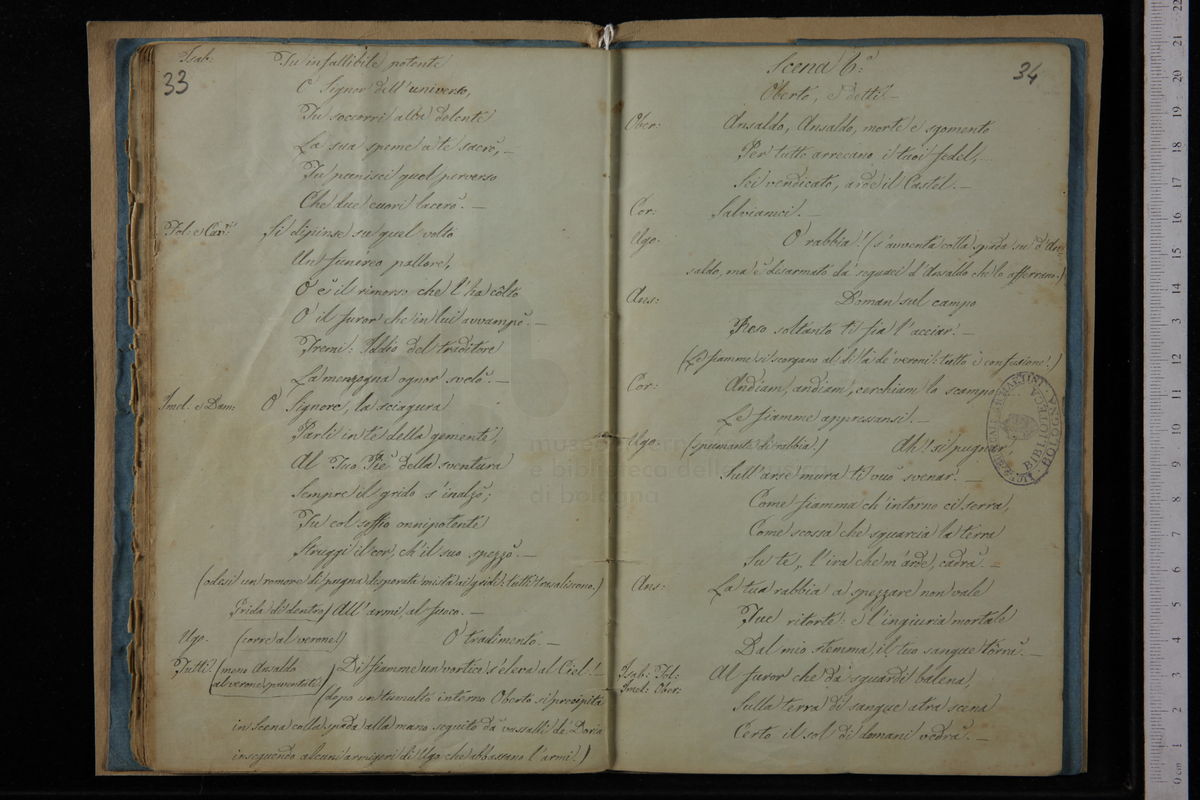 33
Isab: Tu infallibile potente
O Signor dell'universo,
Tu soccorri alla dolente
La sua speme a te sacrò, —
Tu punisci quel perverso
Che due cuori lacerò. —
Fol: e Cav:ri Si dipinse su quel volto
Un funereo pallore,
O è il rimorso che l'ha côlto
O il furor che in lui avvampò. —
Tremi: Iddio del traditore
La menzogna ognor svelò. —
Imel. e Dam: O Signore, la sciagura
Parli in te della gemente,
Al Tuo Piè della sventura
Sempre il grido s'inalzò;
Tu col soffio onnipotente
Struggi il cor, ch'il suo spezzò. —
(odesi un romore di pugna disperata mista ai gridi: tutti trasaliscono.)
Grida di dentro) All'armi, al fuoco. —
Ugo. (corre al verone!) O tradimento. —
Tutti. (meno Ansaldo al verone spaventati) Di fiamme un vortice s'eleva al Ciel! —
(dopo un tumulto interno Oberto si precipita
in Scena colla spada alla mano seguito da vassalli de' Doria
inseguendo alcuni armigeri di Ugo che abbassano l'armi.)
34
Scena 6.a
Oberto, e detti. —
Ober: Ansaldo, Ansaldo, morte e sgomento
Per tutto arrecano i tuoi fedel, ...
Sei vendicato, arde il Castel. —
Cor: Salviamci. —
Ugo. O rabbia! (s'avventa colla spada su d'An=
saldo, ma è disarmato da' seguaci d'Ansaldo che lo afferrano.)
Ans: Doman sul campo
Reso soltanto ti fia l'acciar. —
(Le fiamme si scorgano al di là de' veroni: tutto è confusione.)
Cor: Andiam, andiam, cerchiam lo scampo
Le fiamme appressansi. —
Ugo. (spumante di rabbia.) Ah! si pugna
Sull'arse mura ti vuò svenar. —
Come fiamma ch'intorno ci serra,
Come scossa che squarcia la terra
Su te, l'ira che m'arde, cadrà. =
Ans: La tua rabbia a spezzare non vale
Tue ritorte: e l'ingiuria mortale
Dal mio stemma, il tuo sangue torrà. —
Isab: Fol: Imel: Ober: Al furor che da' sguardi balena,
Sulla terra di sangue atra scena
Certo il sol di domani vedrà. —
museo internazionale
e biblioteca della musica
di bologna
BIBLIOTECA
BOLOGNA